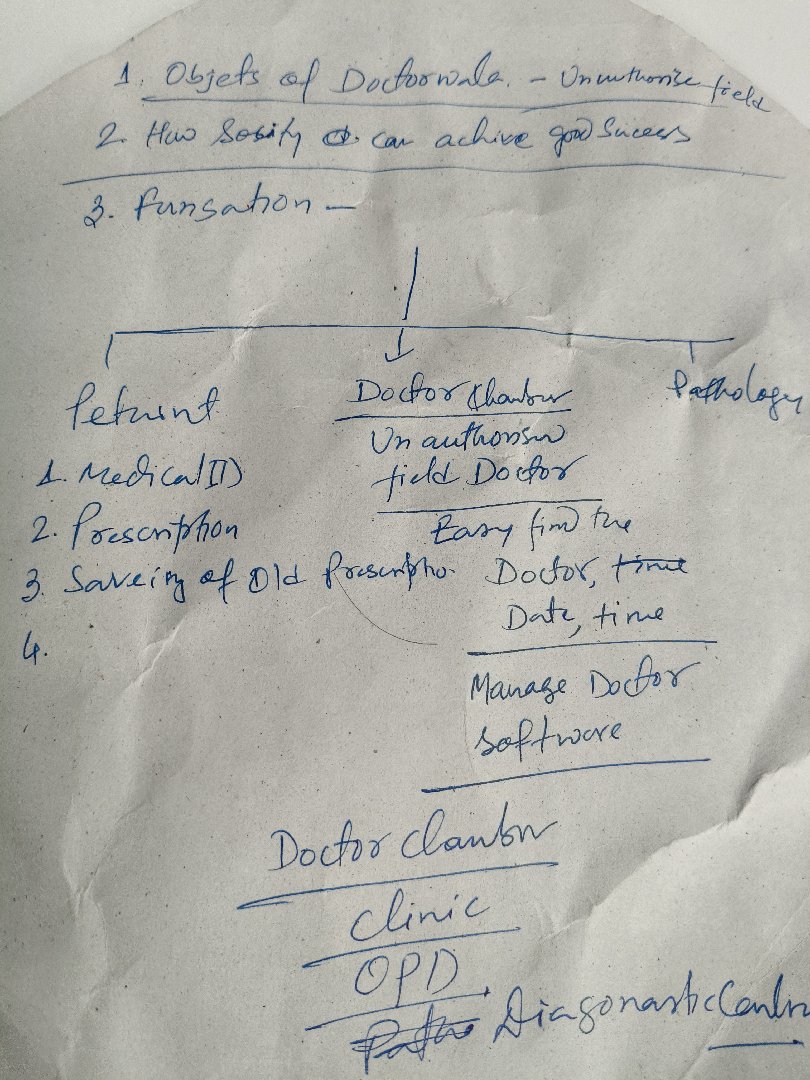 1. Objets of Doctorwala. - Unauthorise field
2. How Sosity can achive good Success
3. Funsation -
Petaint
1. Medical ID
2. Prescription
3. Saveing of Old Prescriptio.
4.
Doctor Chambur
Un authorisw
field Doctor
Easy find the
Doctor, time
Date, time
Manage Doctor
Software
Pathology
Doctor Clambur
Clinic
OPD
Diagonastic Centr